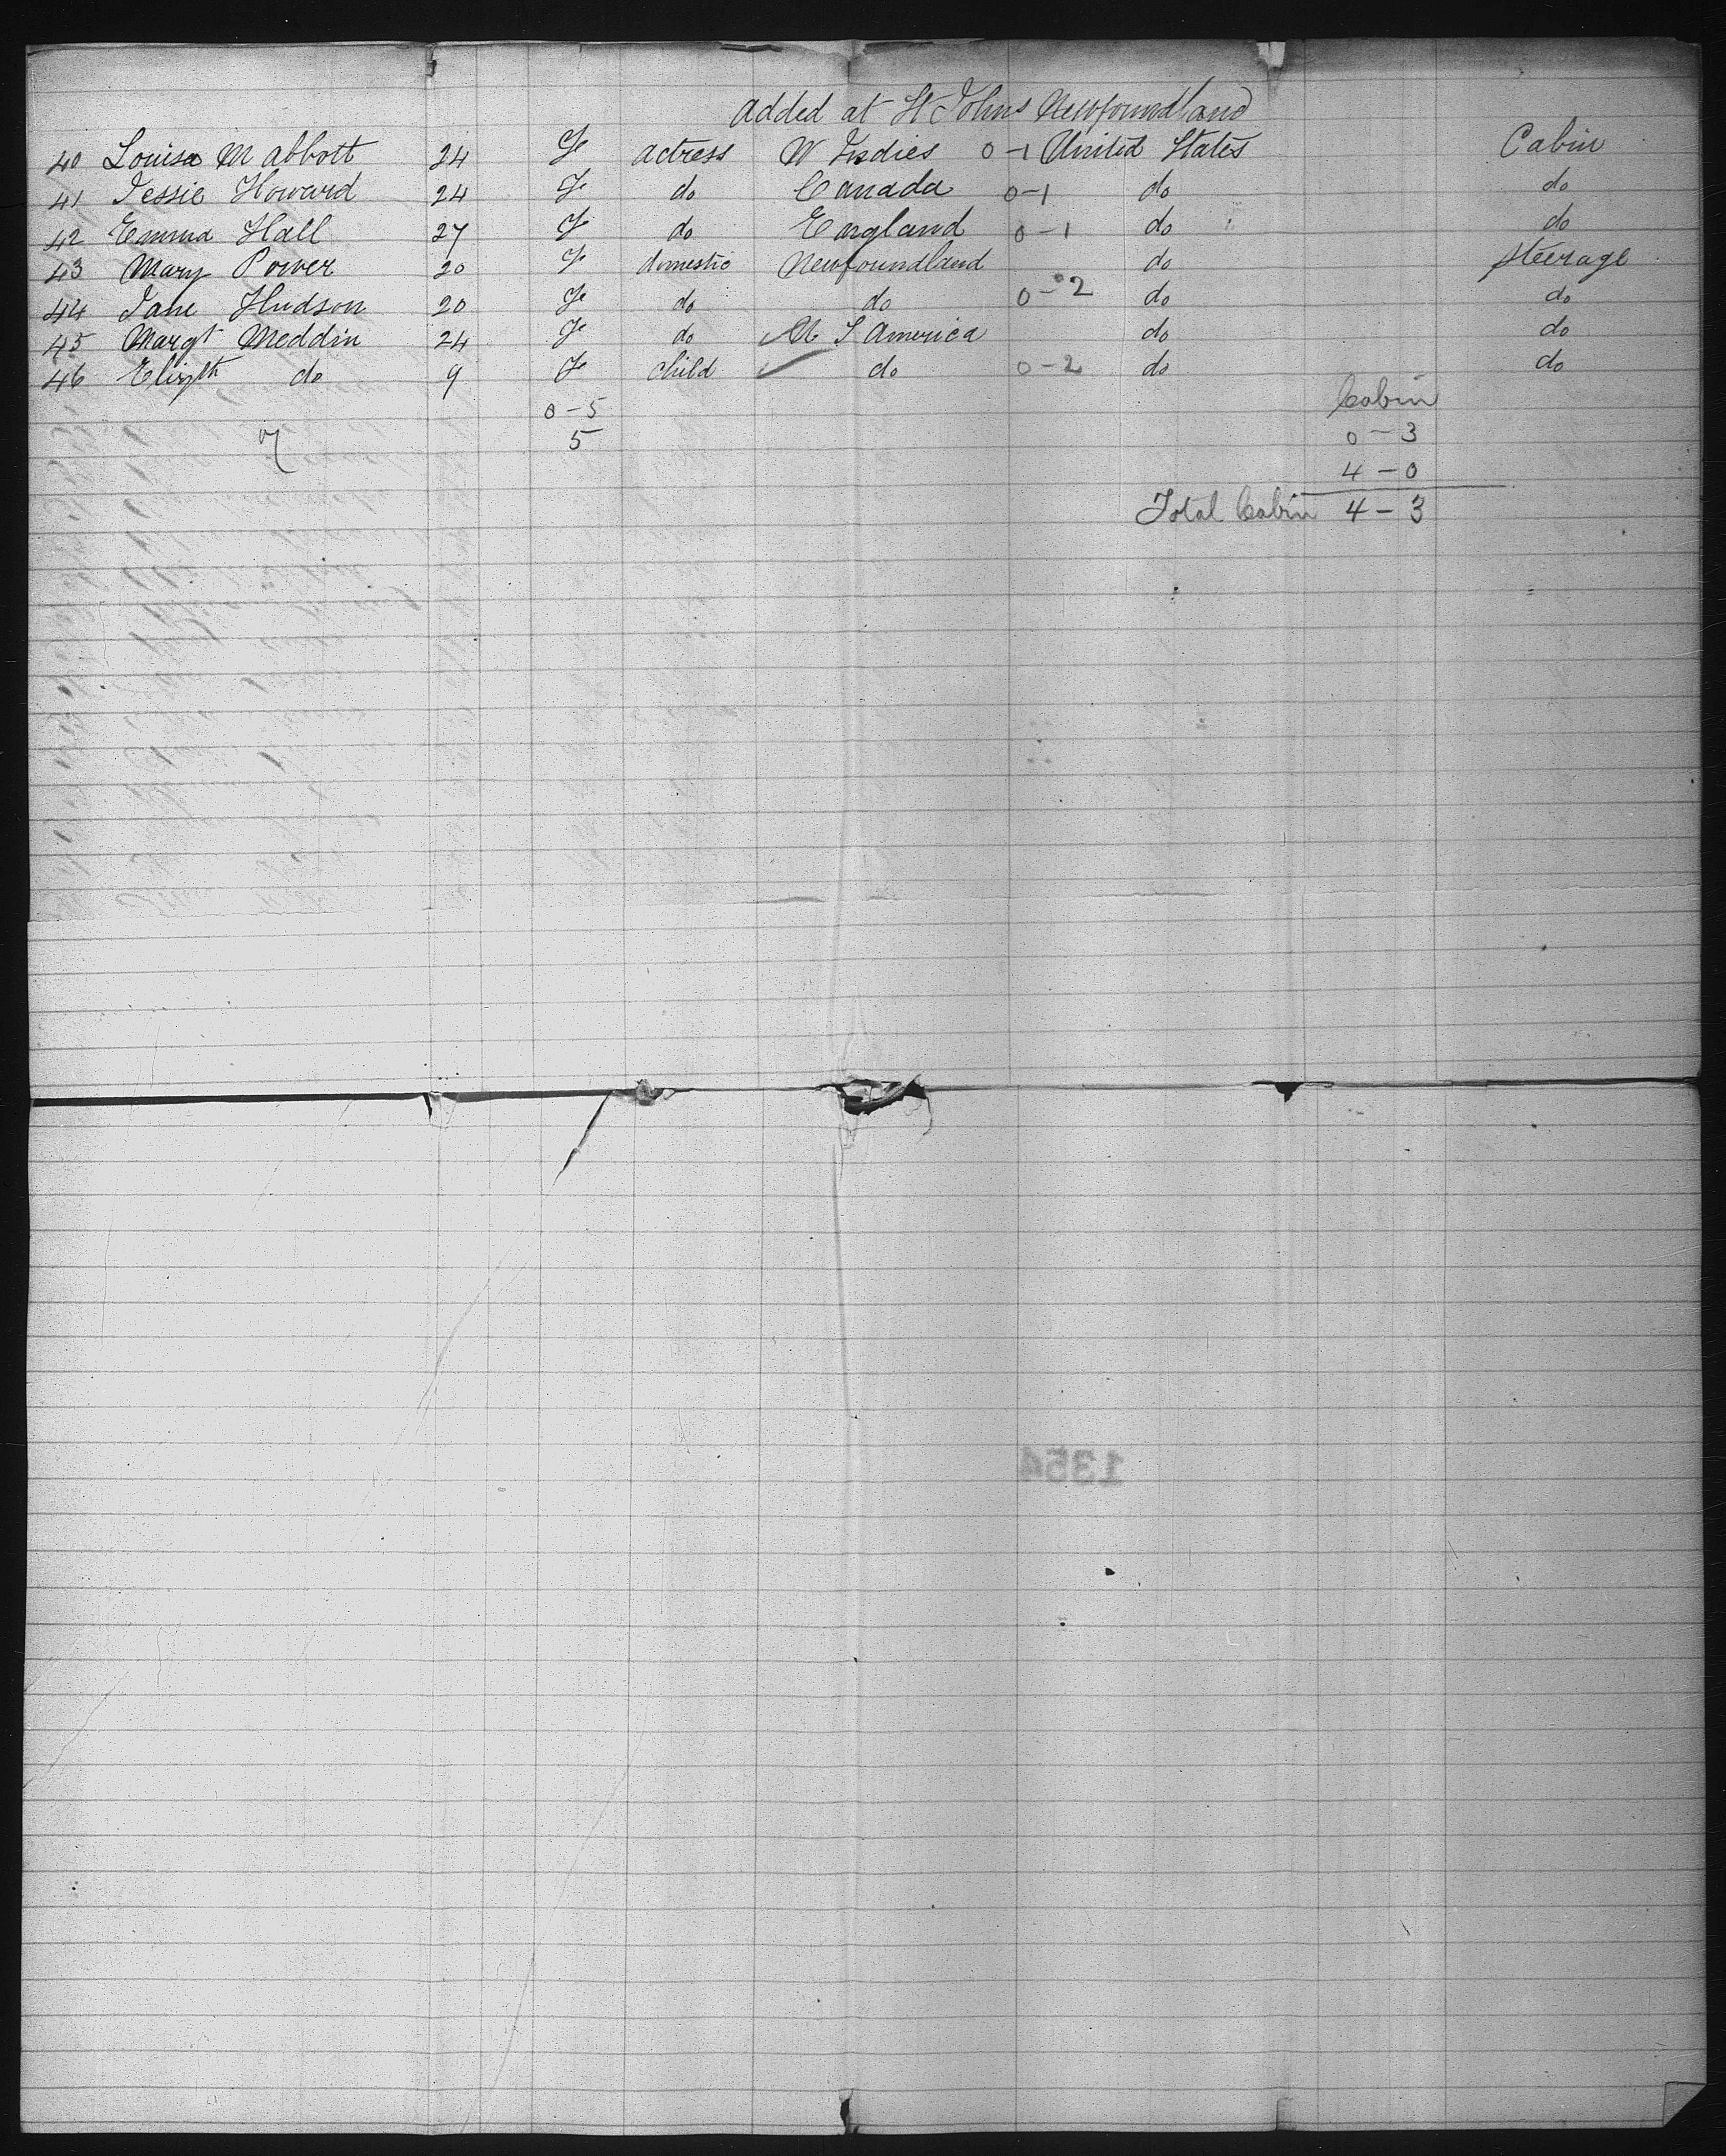 Added at St Johns Newfoundland
40 Louisa M Abbott 24 F Actress W Indies 0-1 United States Cabin
41 Jessie Howard 24 F do Canada 0-1 do do
42 Emma Hall 27 F do England 0-1 do do
43 Mary Power 20 F domestic Newfoundland do Steerage
44 Jane Hudson 20 F do do 0-2 do do
45 Margt Meddin 24 F do U S America do do
46 Elizth do 9 F child do 0-2 do do
0-5 Cabin
7 5 0-3
4-0
Total Cabin 4-3
1354